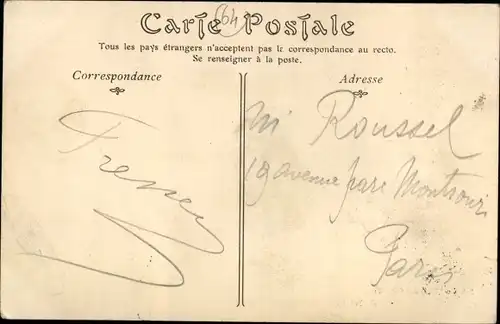 Carte Postale
64
Tous les pays étrangers n'acceptent pas le correspondance au recto.
Se renseigner à la poste.
Correspondance
Adresse
Mr Roussel
19 avenue parc Montsouri
Paris